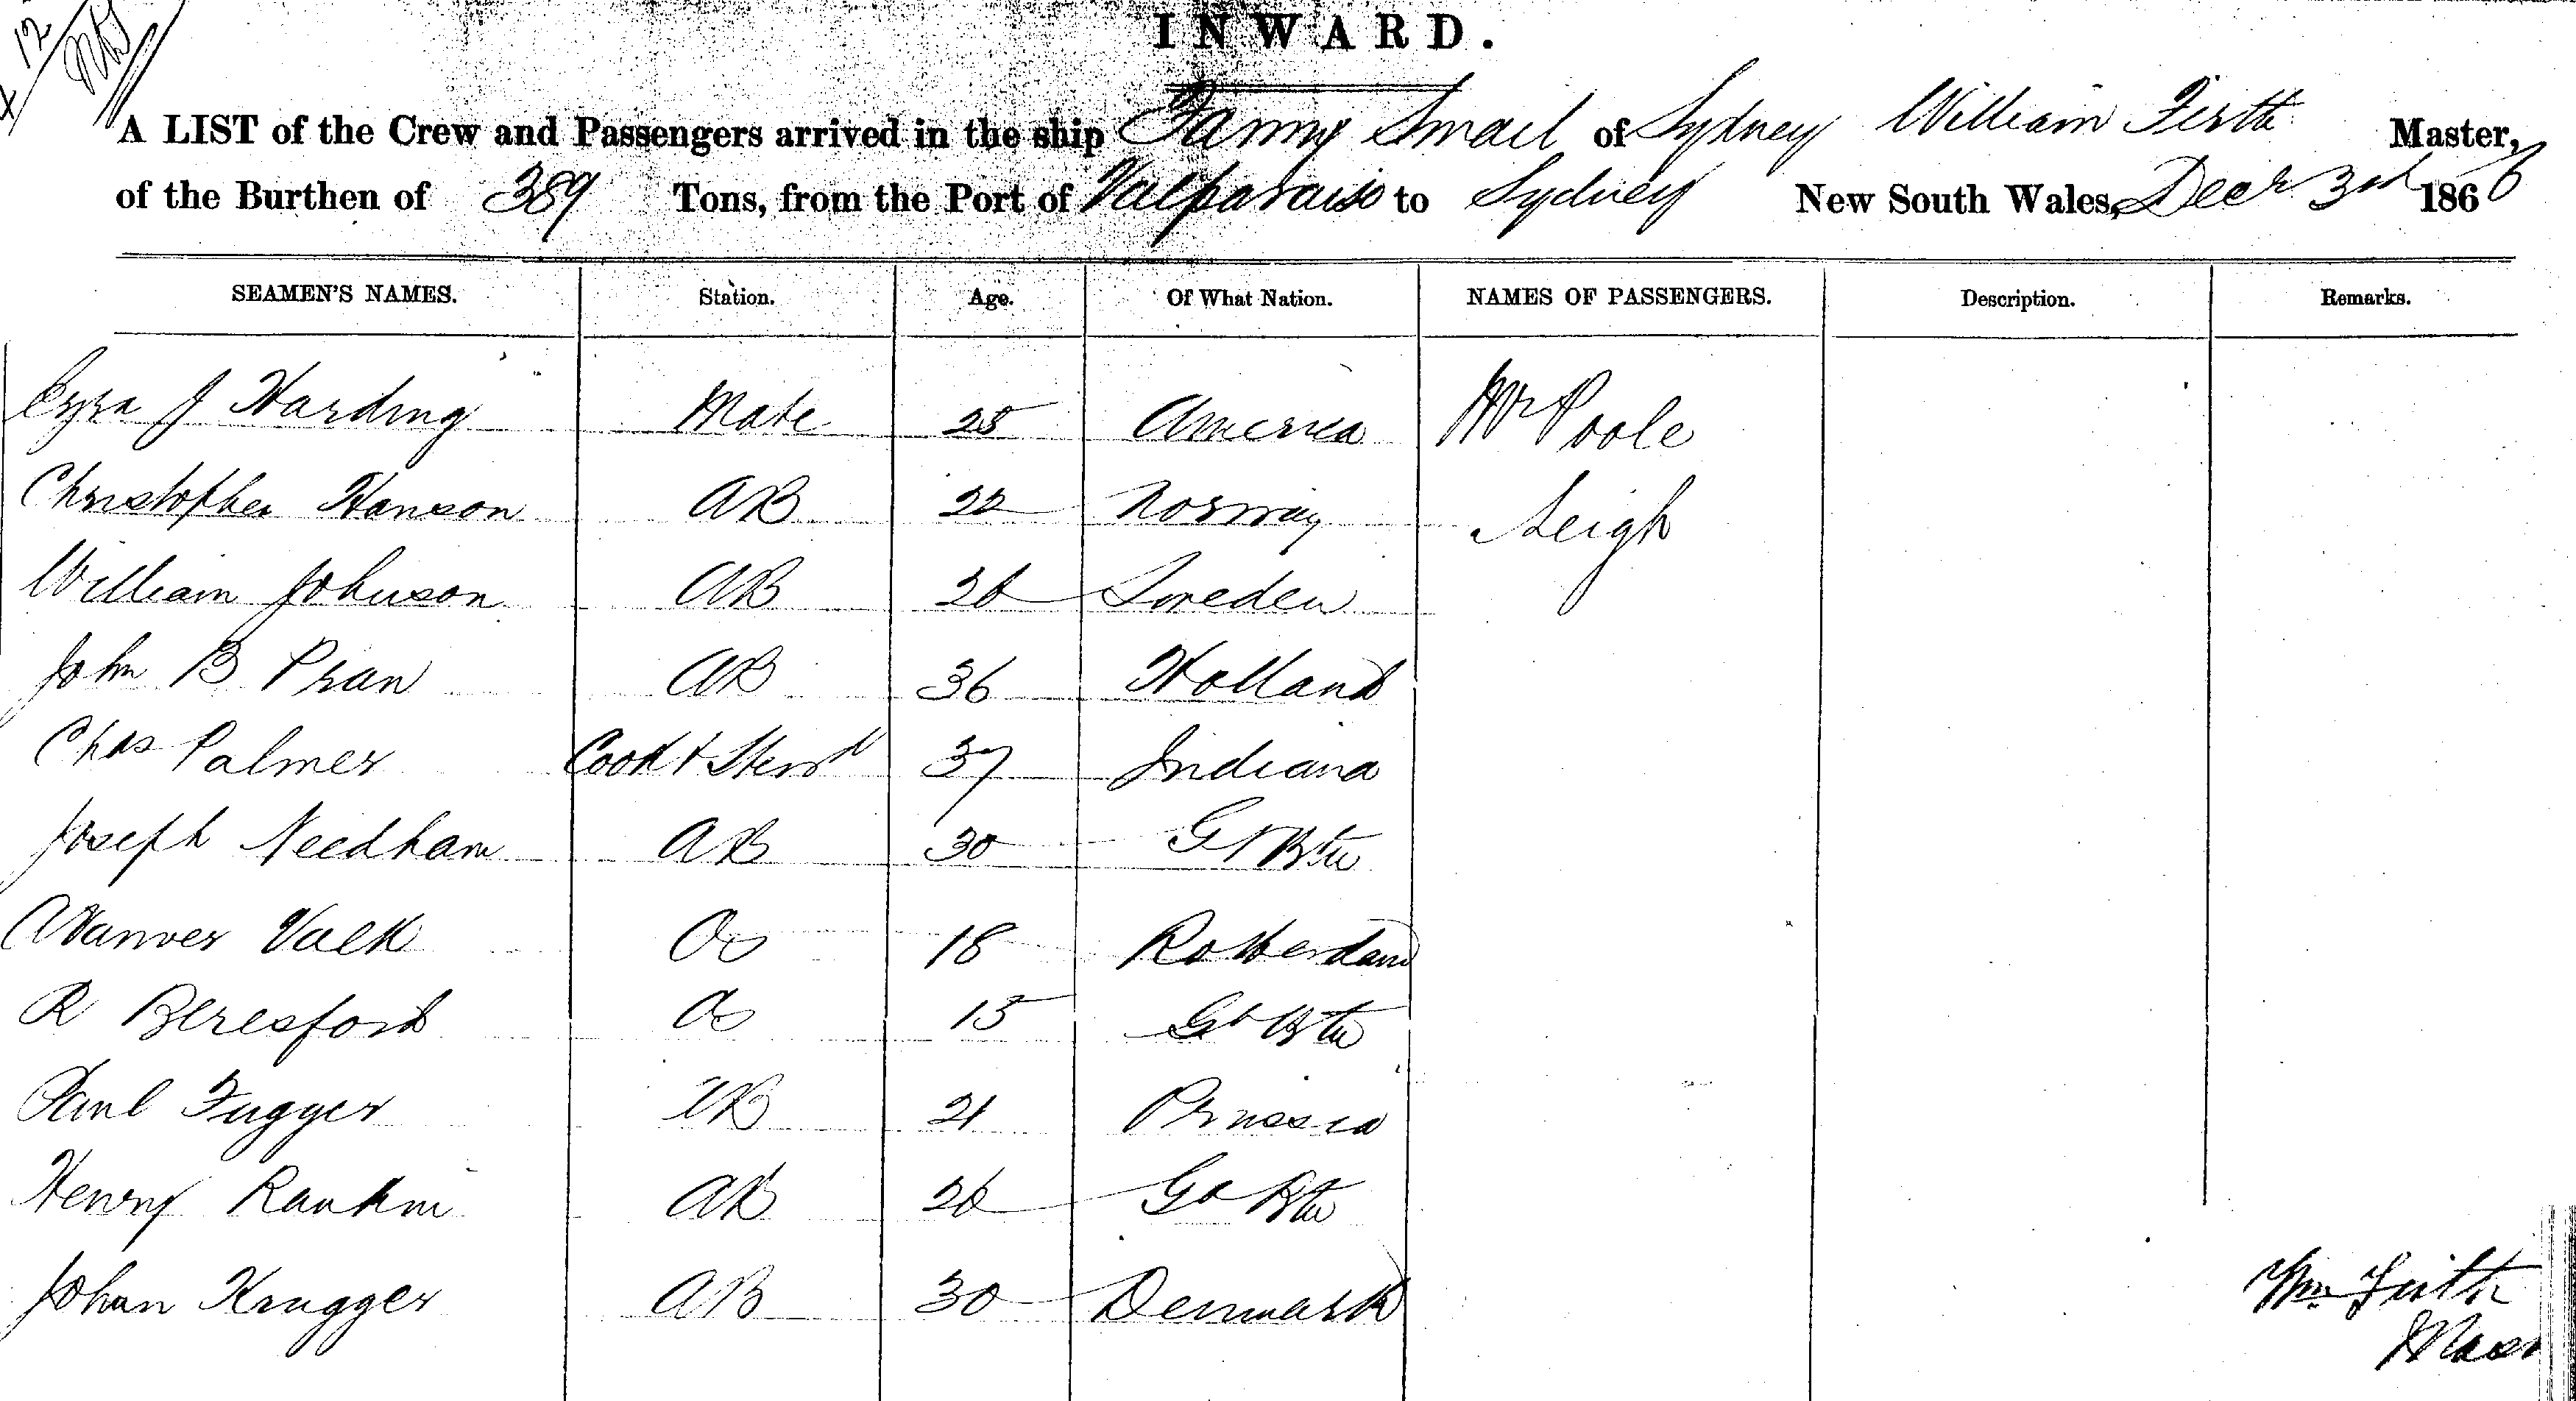 INWARD.
A LIST of the Crew and Passengers arrived in the ship Fanny Smail of Sydney William Firth Master,
of the Burthen of 389 Tons, from the Port of Valparaiso to Sydney New South Wales, Decr 3rd 1866
SEAMEN'S NAMES. Station. Age. Of What Nation. NAMES OF PASSENGERS. Description. Remarks.
Ezra J Harding Mate 25 America Mr Poole
Christopher Hanson AB 22 Norway Leigh
William Johnson AB 26 Sweden
John B Pran AB 36 Holland
Chas Palmer Cook & Stewd 37 Indiana
Joseph Needham AB 30 Gt Btn
Valk Os 18 Rotterdam
R Beresford Os 15 Gt Btn
Paul Fugger AB 21 Prussia
Henry Rankin AB 26 Gt Btn
Johan Krugger AB 30 Denmark
Wm Firth